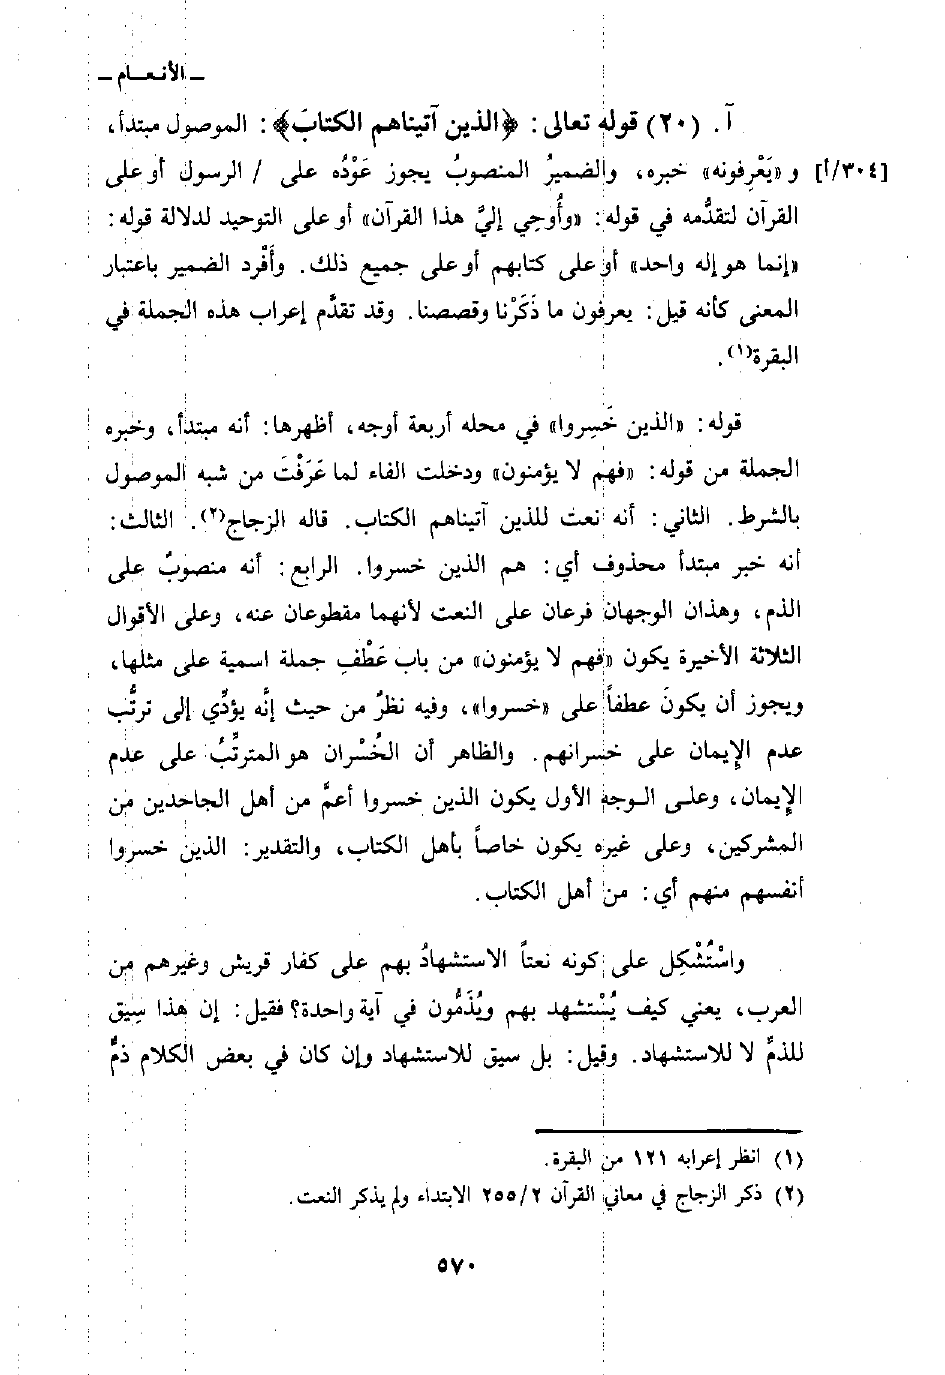 ـ الأنعـام ـ
آ. (٢٠) قوله تعالى: ﴿الذين آتيناهم الكتابَ﴾: الموصول مبتدأ،
[٣٠٤/أ] و «يَعْرِفونه» خبره، والضميرُ المنصوبُ يجوز عَوْدُه على / الرسول أو على
القرآن لتقدُّمه في قوله: «وأُوحِي إليَّ هذا القرآن» أو على التوحيد لدلالة قوله:
«إنما هو إله واحد» أو على كتابهم أو على جميع ذلك. وأَفْرد الضمير باعتبار
المعنى كأنه قيل: يعرفون ما ذَكَرْنا وقصصنا. وقد تقدَّم إعراب هذه الجملة في
البقرة(١).
قوله: «الذين خَسِروا» في محله أربعة أوجه، أظهرها: أنه مبتدأ، وخبره
الجملة من قوله: «فهم لا يؤمنون» ودخلت الفاء لما عَرَفْتَ من شبه الموصول
بالشرط. الثاني: أنه نعت للذين آتيناهم الكتاب. قاله الزجاج(٢). الثالث:
أنه خبر مبتدأ محذوف أي: هم الذين خسروا. الرابع: أنه منصوبٌ على
الذم، وهذان الوجهان فرعان على النعت لأنهما مقطوعان عنه، وعلى الأقوال
الثلاثة الأخيرة يكون «فهم لا يؤمنون» من باب عَطْفِ جملة اسمية على مثلها،
ويجوز أن يكونَ عطفاً على «خسروا»، وفيه نظرٌ من حيث إنَّه يؤدِّي إلى ترتُّب
عدم الإِيمان على خسرانهم. والظاهر أن الخُسْران هو المترتِّبُ على عدم
الإِيمان، وعلـى الـوجه الأول يكون الذين خسروا أعمَّ من أهل الجاحدين من
المشركين، وعلى غيره يكون خاصاً بأهل الكتاب، والتقدير: الذين خسروا
أنفسهم منهم أي: من أهل الكتاب.
واسْتُشْكِل على كونه نعتاً الاستشهادُ بهم على كفار قريش وغيرهم من
العرب، يعني كيف يُسْتشهد بهم ويُذَمُّون في آية واحدة؟ فقيل: إن هذا سِيق
للذمِّ لا للاستشهاد. وقيل: بل سيق للاستشهاد وإن كان في بعض الكلام ذمٌّ
(١) انظر إعرابه ١٢١ من البقرة.
(٢) ذكر الزجاج في معاني القرآن ٢/٢٥٥ الابتداء ولم يذكر النعت.
٥٧٠